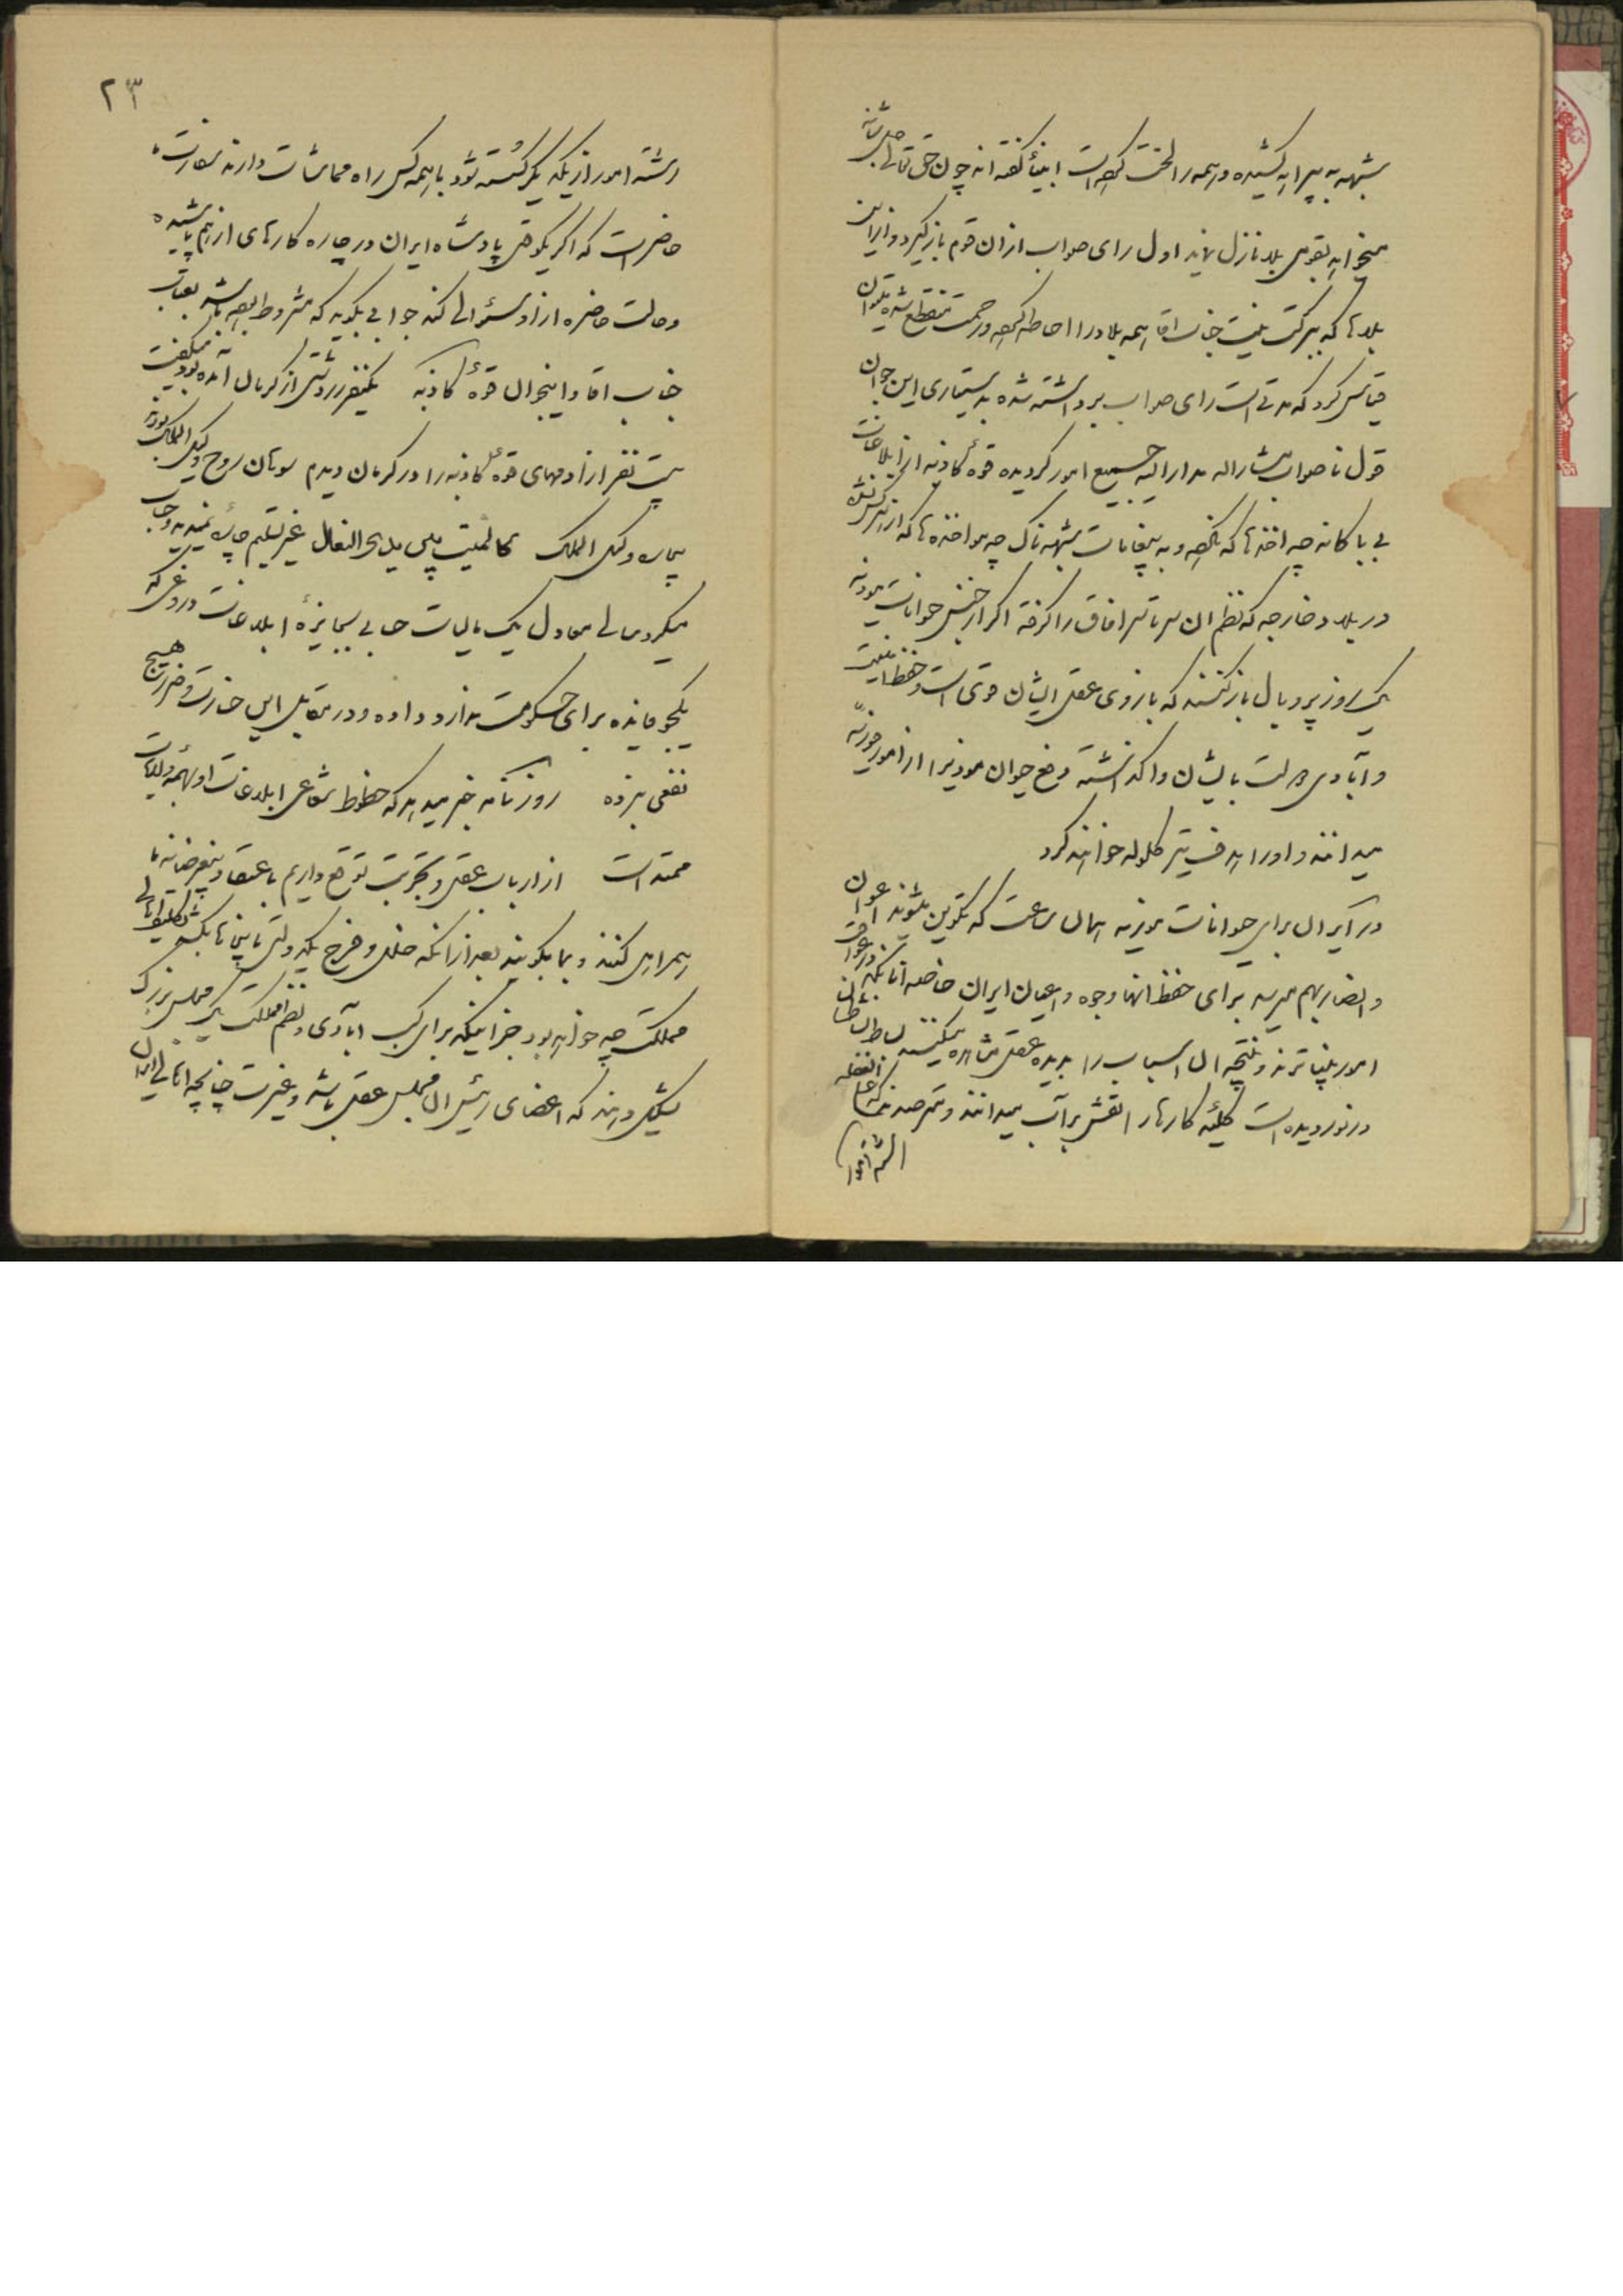 شبهه به پیرایه کشیده و همه را لخت کرده است انبیا گفته اند چون حق تعالی جل شانه
میخواهد بقومی بلا نازل نماید اول رای صواب از ان قوم باز گیرد و از این
بلاها که ببرکت نیت جناب اقا همه بلاد را احاطه کرده و رحمت منقطع شده میتوان
قیاس کرد که مدتی است رای صواب برداشته شده بدستیاری این جوان
قول ناصواب مشارالیه مدار الیه جمیع امور گردیده قوه کاذبه از ابلاغات
بی باکانه چه اخذها که نکرده و به پیغامات شبهه ناک چه مواخذه ها که از هر کس نشده
در بلاد خارجه که نظم ان سرتاسر افاق را گرفته اگر از جنس حیوانات موذیه
یک روز پر و بال باز کنند که بازوی عقل ایشان قوی است و حفظ امنیت
و آبادی دولت بایشان واگذاشته دفع حیوان موذی را از امور جزئیه
میدانند و او را هدف تیر گلوله خواهند کرد
در ایران برای حیوانات موذیه همان ساعت که تکوین میشوند اعوان
و انصار بهم میرسد برای حفظ انها وجوه و اعیان ایران خاصه انانیکه در عواقب
امور بیناترند و نتیجه ان اسباب را بدیده عقل مشاهده میکنند بساط نشاطشان
در نوردیده است کلیه کارها را نقش بر آب میدانند و مترصدند که
۲۳
رشته امور از یکدیگر گسسته شود با همه کس راه مماشات دارند سفارت
حاضر است که اگر یکوقتی پادشاه ایران در چاره کارهای از هم پاشیده
و حالت حاضره از او سئوالی کند جوابی بگوید که مشروط
جناب اقا و اینحوال قوه کاذبه یکنفر زردشتی از کرمان آمده بود میگفت
بیست نفر از ادمهای قوه کاذبه را در کرمان دیدم سوهان روح وکیل الملک بودند
بیچاره وکیل الملک غیر تسلیم چاره نمیدید و حساب
میکرد مالی معادل یک مالیات حسابی بجایزه ابلاغات دروغی که
یکجو فایده برای حکومت ندارد داده و در مقابل این خسارت و ضرر هیچ
نفعی نبرده روزنامه خبر میدهد که خطوط شعاعی ابلاغات او بهمه ولایات
ممتد است از ارباب عقل و تجربت توقع داریم باعتقاد بیغرضانه ما
همراهی کنند و بما بگویند بعد از انکه دخل و خرج یک دولتی باین
مملکت چه خواهد بود جز اینکه برای کسب ابادی و نظم مملکت یک مجلس بزرگ
تشکیل دهند که اعضای رئیس ان مجلس عقل باشد و غیرت چنانچه اهالی ایران